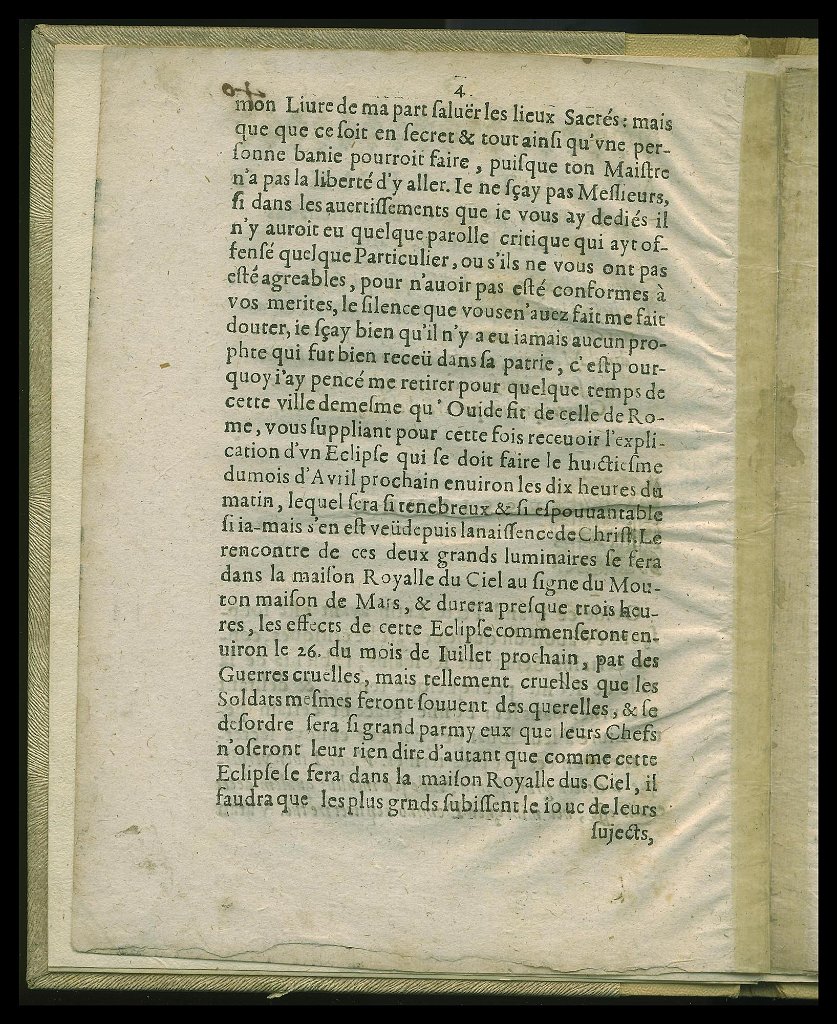 4.
mon Liure de ma part ſaluër les lieux Sacrés: mais
que que ce ſoit en ſecret & tout ainſi qu'vne per-
ſonne banie pourroit faire, puiſque ton Maiſtre
n'a pas la liberté d'y aller. Ie ne ſçay pas Meſſieurs,
ſi dans les auertiſſements que ie vous ay dediés il
n'y auroit eu quelque parolle critique qui ayt of-
fenſé quelque Particulier, ou s'ils ne vous ont pas
eſté agreables, pour n'auoir pas eſté conformes à
vos merites, le ſilence que vousen'auez fait me fait
douter, ie ſçay bien qu'il n'y a eu iamais aucun pro-
phte qui fut bien receü dans ſa patrie, c'eſtp our-
quoy i'ay pencé me retirer pour quelque temps de
cette ville demeſme qu'Ouide fit de celle de Ro-
me, vous ſuppliant pour cette fois receuoir l'expli-
cation d'vn Eclipſe qui ſe doit faire le huictieſme
dumois d'Avril prochain enuiron les dix heures du
matin, lequel ſera ſi tenebreux & ſi eſpouuantable
ſi ia-mais s'en eſt veüdepuis lanaiſſence de Chriſt. Le
rencontre de ces deux grands luminaires ſe fera
dans la maiſon Royalle du Ciel au ſigne du Mou-
ton maiſon de Mars, & durera preſque trois heu-
res, les effects de cette Eclipſe commenſeront en-
uiron le 26. du mois de Iuillet prochain, par des
Guerres cruelles, mais tellement cruelles que les
Soldats meſmes feront ſouuent des querelles, & ſe
deſordre ſera ſi grand parmy eux que leurs Chefs
n'oſeront leur rien dire d'autant que comme cette
Eclipſe ſe fera dans la maiſon Royalle dus Ciel, il
faudra que les plus grnds ſubiſſent le io uc de leurs
ſujects,